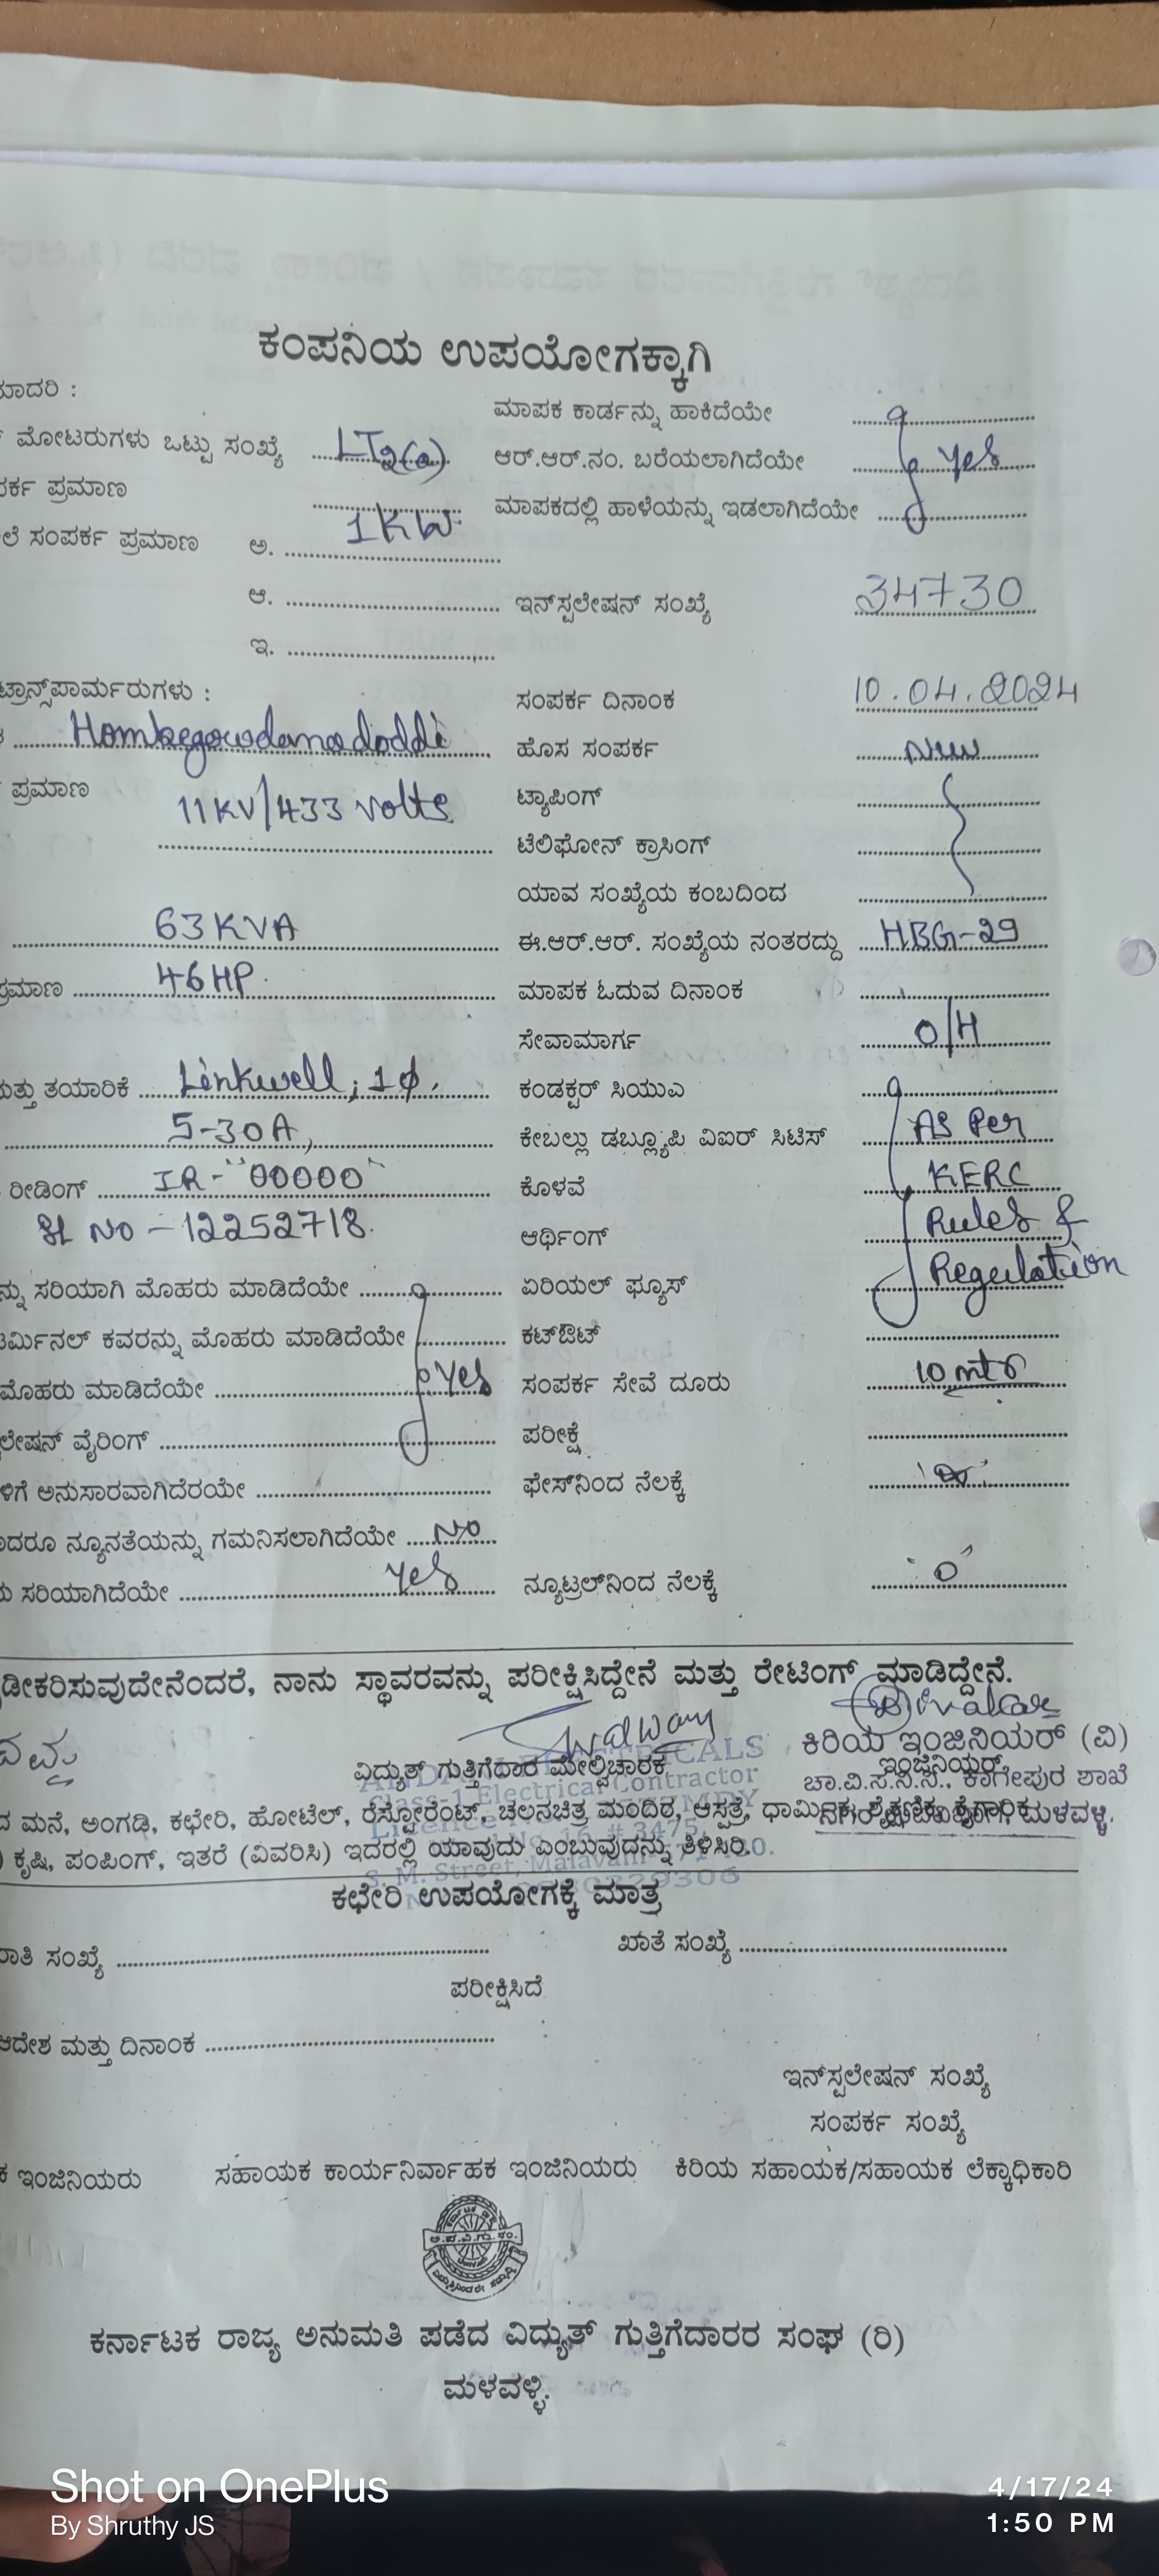 ಕಂಪನಿಯ ಉಪಯೋಗಕ್ಕಾಗಿ
ಮಾದರಿ :
ಮಾಪಕ ಕಾರ್ಡನ್ನು ಹಾಕಿದೆಯೇ
ಮೋಟರುಗಳು ಒಟ್ಟು ಸಂಖ್ಯೆ LT2(a) ಆರ್.ಆರ್.ನಂ. ಬರೆಯಲಾಗಿದೆಯೇ Yes
ಪರ್ಕ ಪ್ರಮಾಣ ಮಾಪಕದಲ್ಲಿ ಹಾಳೆಯನ್ನು ಇಡಲಾಗಿದೆಯೇ
ಲೆ ಸಂಪರ್ಕ ಪ್ರಮಾಣ ಅ. 1KW
ಆ. ಇನ್‌ಸ್ಟಲೇಷನ್ ಸಂಖ್ಯೆ 34730
ಇ.
ಟ್ರಾನ್ಸ್‌ಪಾರ್ಮರುಗಳು : ಸಂಪರ್ಕ ದಿನಾಂಕ 10.04.2024
Hombegowdanadoddi ಹೊಸ ಸಂಪರ್ಕ New
ಪ್ರಮಾಣ 11KV/433 Volts ಟ್ಯಾಪಿಂಗ್
ಟೆಲಿಫೋನ್ ಕ್ರಾಸಿಂಗ್
ಯಾವ ಸಂಖ್ಯೆಯ ಕಂಬದಿಂದ
63KVA ಈ.ಆರ್.ಆರ್. ಸಂಖ್ಯೆಯ ನಂತರದ್ದು HBG-29
ಪ್ರಮಾಣ 46HP. ಮಾಪಕ ಓದುವ ದಿನಾಂಕ
ಸೇವಾಮಾರ್ಗ O/H
ಮತ್ತು ತಯಾರಿಕೆ Linkwell, 1ϕ. ಕಂಡಕ್ಟರ್ ಸಿಯುಎ
5-30A, ಕೇಬಲ್ಲು ಡಬ್ಲ್ಯೂಪಿ ವಿಐರ್ ಸಿಟಿಸ್ AS Per
ರೀಡಿಂಗ್ IR-"00000" ಕೊಳವೆ KERC
SL NO - 12252718. ಆರ್ಥಿಂಗ್ Rules &
ನ್ನು ಸರಿಯಾಗಿ ಮೊಹರು ಮಾಡಿದೆಯೇ ಏರಿಯಲ್ ಫ್ಯೂಸ್ Regulation
ಟರ್ಮಿನಲ್ ಕವರನ್ನು ಮೊಹರು ಮಾಡಿದೆಯೇ ಕಟ್‌ಔಟ್
ಮೊಹರು ಮಾಡಿದೆಯೇ Yes ಸಂಪರ್ಕ ಸೇವೆ ದೂರು 10 mts
ಲೇಷನ್ ವೈರಿಂಗ್ ಪರೀಕ್ಷೆ
ಳಿಗೆ ಅನುಸಾರವಾಗಿದೆರಯೇ ಫೇಸ್‌ನಿಂದ ನೆಲಕ್ಕೆ
ದರೂ ನ್ಯೂನತೆಯನ್ನು ಗಮನಿಸಲಾಗಿದೆಯೇ No
ಸರಿಯಾಗಿದೆಯೇ Yes ನ್ಯೂಟ್ರಲ್‌ನಿಂದ ನೆಲಕ್ಕೆ '0'
ಡೀಕರಿಸುವುದೇನೆಂದರೆ, ನಾನು ಸ್ಥಾವರವನ್ನು ಪರೀಕ್ಷಿಸಿದ್ದೇನೆ ಮತ್ತು ರೇಟಿಂಗ್ ಮಾಡಿದ್ದೇನೆ.
ವಿದ್ಯುತ್ ಗುತ್ತಿಗೆದಾರ ಮೇಲ್ವಿಚಾರಕ ಇಂಜಿನಿಯರ್
ಕಿರಿಯ ಇಂಜಿನಿಯರ್ (ವಿ)
ಚಾ.ವಿ.ಸ.ನಿ.ನಿ., ಕಾಗೇಪುರ ಶಾಖೆ
ಮಳವಳ್ಳಿ.
Class-1 Electrical Contractor
ದ ಮನೆ, ಅಂಗಡಿ, ಕಛೇರಿ, ಹೋಟೆಲ್, ರೆಸ್ಟೋರೆಂಟ್, ಚಲನಚಿತ್ರ ಮಂದಿರ, ಆಸ್ಪತ್ರೆ, ಧಾರ್ಮಿಕ, ಶೈಕ್ಷಣಿಕ,
ಕೃಷಿ, ಪಂಪಿಂಗ್, ಇತರೆ (ವಿವರಿಸಿ) ಇದರಲ್ಲಿ ಯಾವುದು ಎಂಬುವುದನ್ನು ತಿಳಿಸಿರಿ.
S. M. Street, Malavalli
ಕಛೇರಿ ಉಪಯೋಗಕ್ಕೆ ಮಾತ್ರ
ರಾತಿ ಸಂಖ್ಯೆ ಖಾತೆ ಸಂಖ್ಯೆ
ಪರೀಕ್ಷಿಸಿದೆ
ಆದೇಶ ಮತ್ತು ದಿನಾಂಕ
ಇನ್‌ಸ್ಟಲೇಷನ್ ಸಂಖ್ಯೆ
ಸಂಪರ್ಕ ಸಂಖ್ಯೆ
ಕ ಇಂಜಿನಿಯರು ಸಹಾಯಕ ಕಾರ್ಯನಿರ್ವಾಹಕ ಇಂಜಿನಿಯರು ಕಿರಿಯ ಸಹಾಯಕ/ಸಹಾಯಕ ಲೆಕ್ಕಾಧಿಕಾರಿ
ಕರ್ನಾಟಕ ರಾಜ್ಯ ಅನುಮತಿ ಪಡೆದ ವಿದ್ಯುತ್ ಗುತ್ತಿಗೆದಾರರ ಸಂಘ (ರಿ)
ಮಳವಳ್ಳಿ.
Shot on OnePlus
By Shruthy JS
4/17/24
1:50 PM